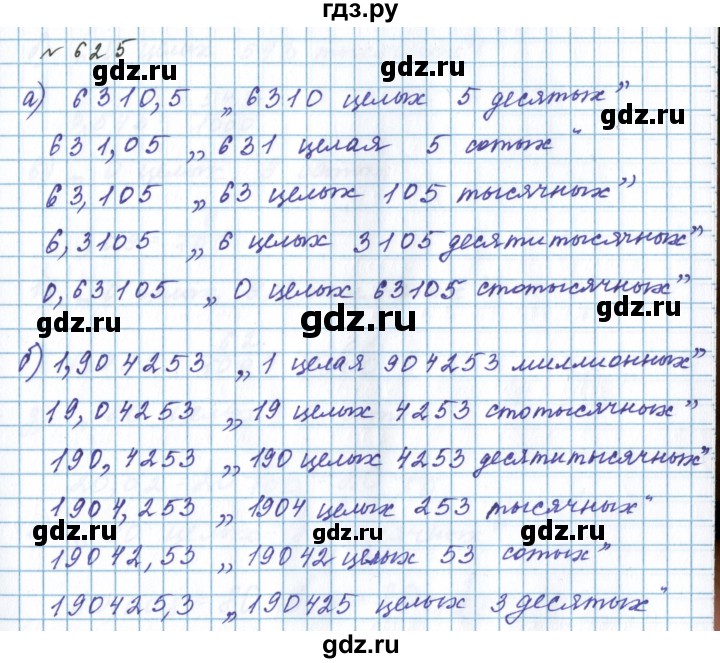 гдз.ру
№ 625
gdz.ru gdz.ru
а) 6310,5 „6310 целых 5 десятых"
gdz.ru
631,05 „631 целая 5 сотых"
63,105 „63 целых 105 тысячных"
6,3105 „6 целых 3105 десятитысячных"
0,63105 „0 целых 63105 стотысячных"
gdz.ru gdz.ru gdz.ru
б) 1,904253 „1 целая 904253 миллионных"
19,04253 „19 целых 4253 стотысячных"
190,4253 „190 целых 4253 десятитысячных"
1904,253 „1904 целых 253 тысячных"
gdz.ru gdz.ru gdz.ru
19042,53 „19042 целых 53 сотых"
190425,3 „190425 целых 3 десятых"
gdz.ru